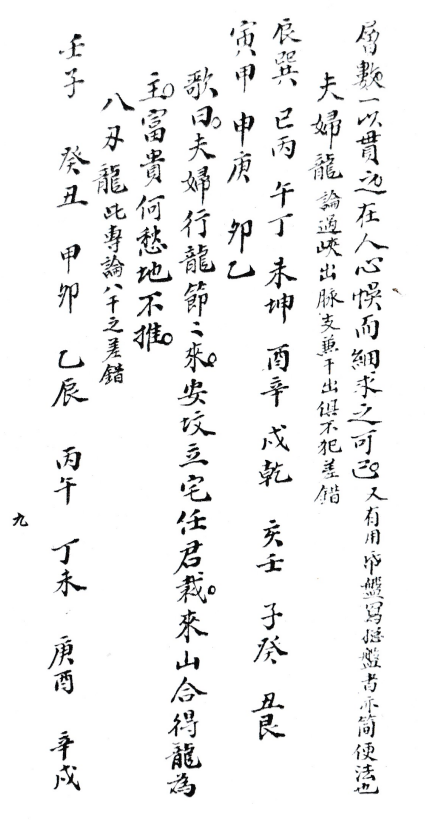 層數一以貫之在人心悞而細求之可已又有用吊盤寫捴盤者亦简便法也
夫婦龍論過峽出脉支兼干出俱不犯差錯
辰巽 巳丙 午丁 未坤 酉辛 戌乾 亥壬 子癸 丑艮
寅甲 申庚 卯乙
歌曰夫婦行龍節々來安坟立宅任君裁來山合得龍為
主富貴何愁地不推
八刄龍此專論八干之差錯
壬子 癸丑 甲卯 乙辰 丙午 丁未 庚酉 辛戌
九